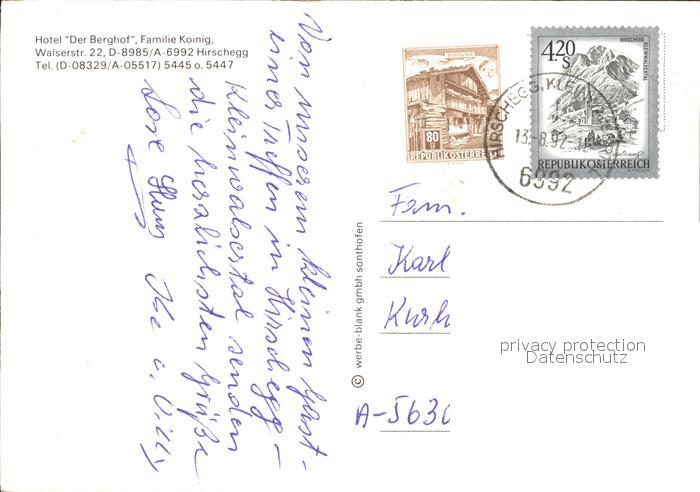 Hotel "Der Berghof", Familie Koinig,
Walserstr. 22, D-8985/A-6992 Hirschegg
Tel. (D-08329/A-05517) 5445 o. 5447
Von unserem kleinen
einer Treffen in Hirschegg –
Kleinwalsertal senden
die herzlichsten Grüße
u. Willy
© werbe-blank gmbh sonthofen
80 g
REPUBLIK ÖSTERREICH
HIRSCHEGG
KLEINWALSERTAL
4.20
S
REPUBLIK ÖSTERREICH
HIRSCHEGG, KLEIN
13.-8.92-12
6992
Fam.
Karl
A-563
privacy protection
Datenschutz